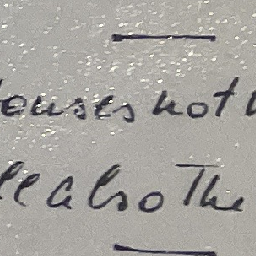 ouses not
also The